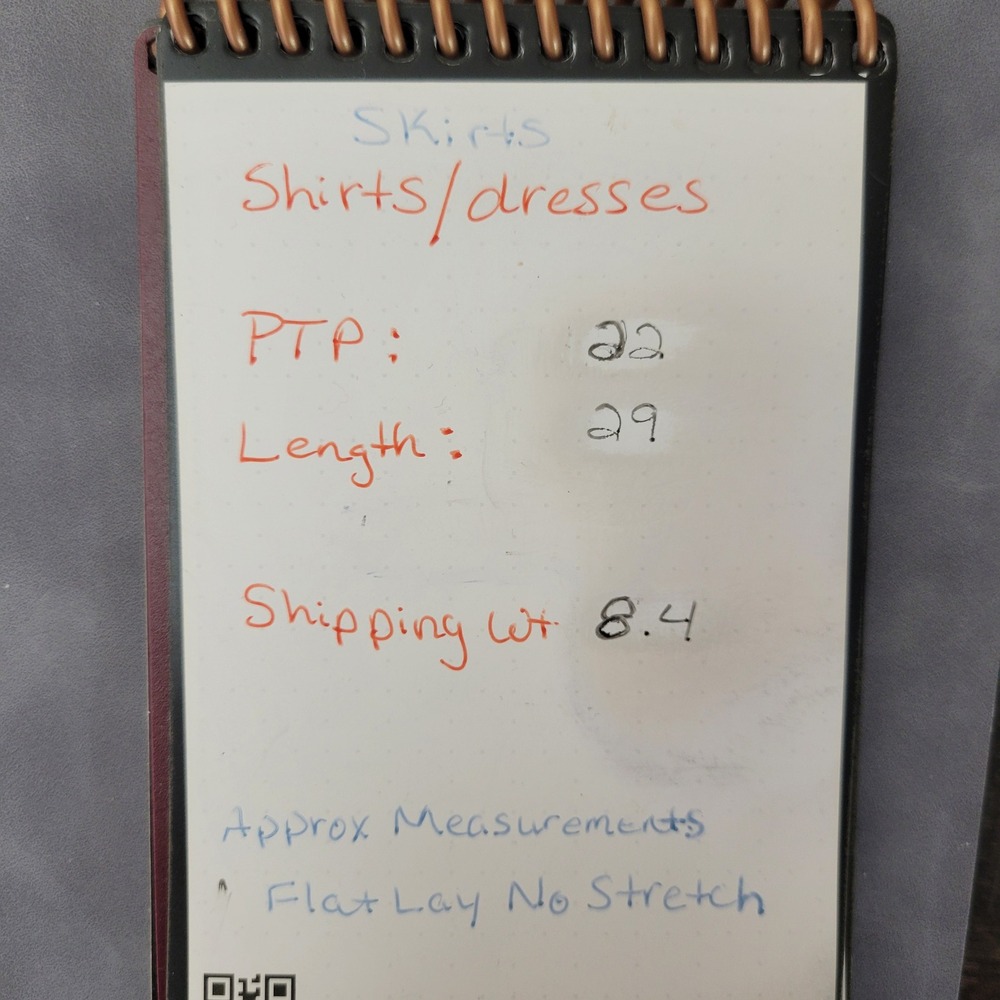 Skirts
Shirts/dresses
PTP: 22
Length: 29
Shipping wt 8.4
Approx Measurements
Flat Lay No Stretch